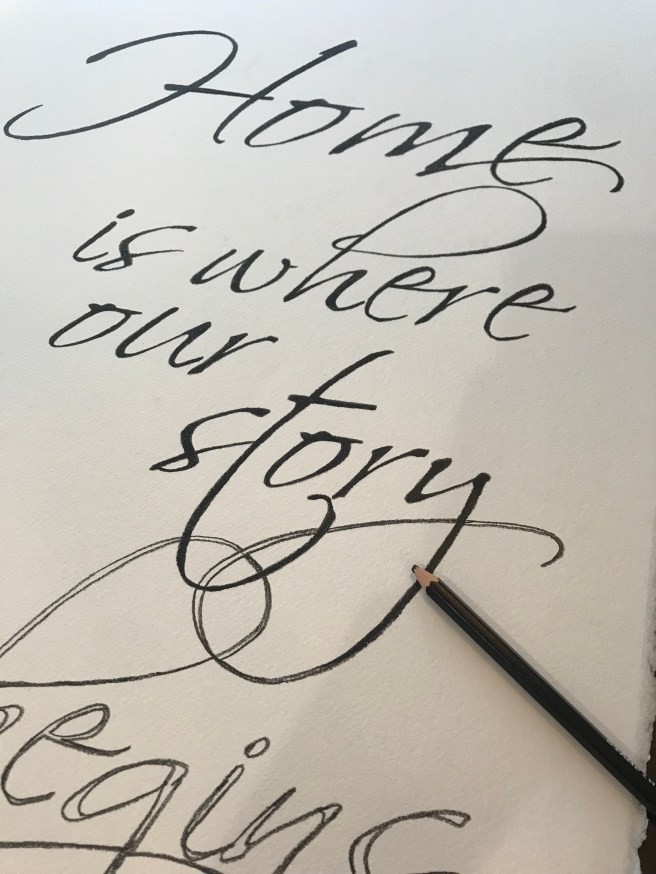 Home
is where
our
story
begins